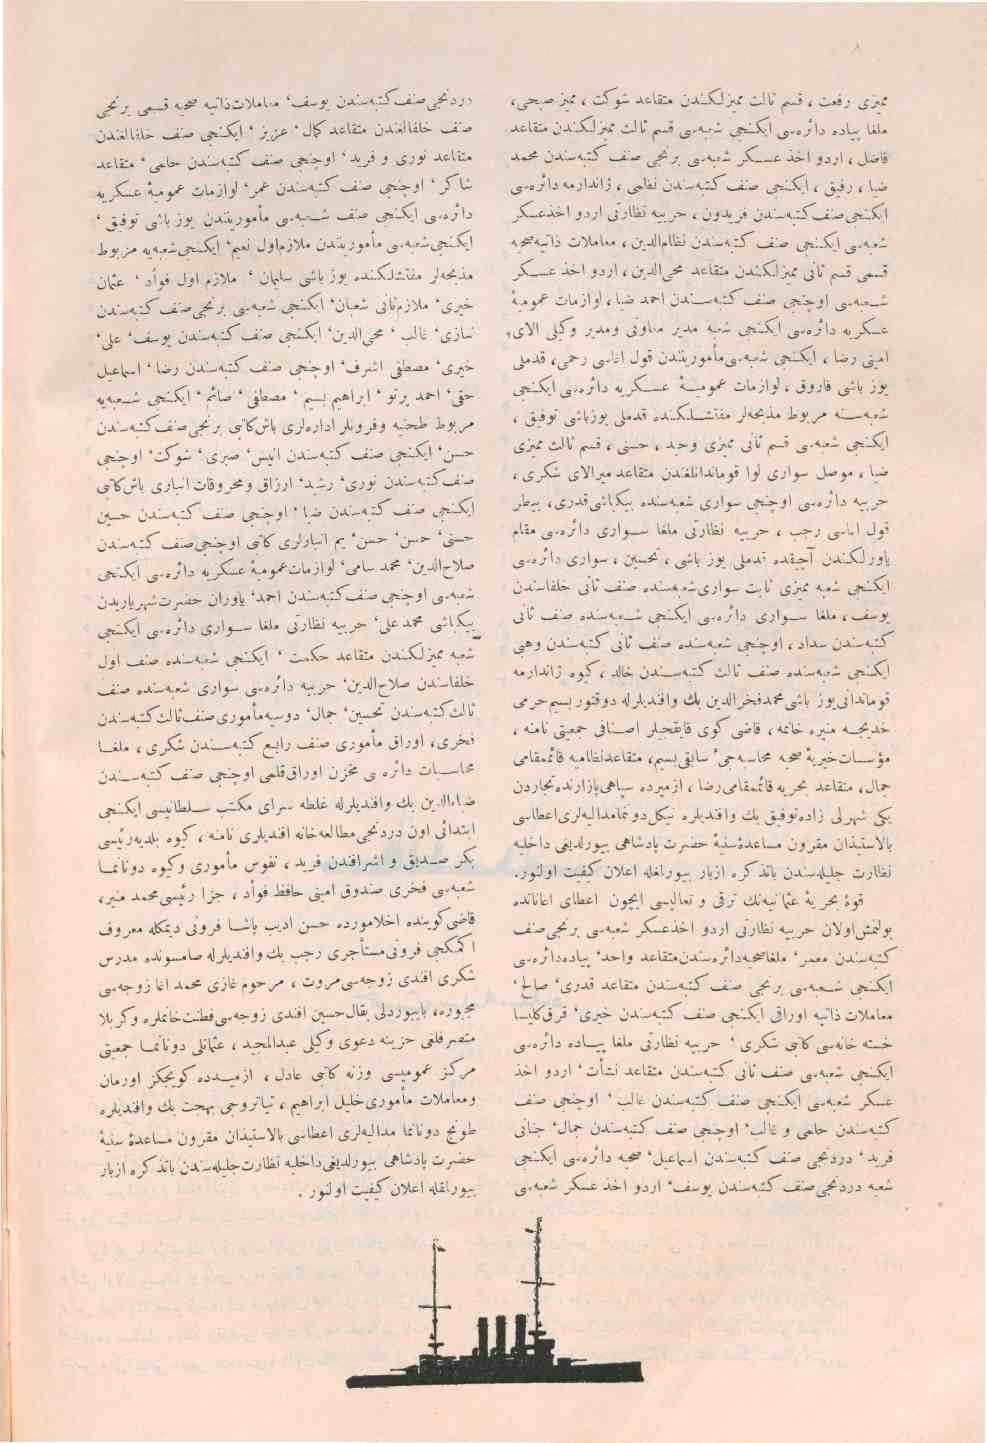 ٨
ممیزی رفعت ، قسم ثالث ممیزلكندن متقاعد شوكت ، ممیز صبحی،
ملغا پیاده دائره‌سی ایكنجی شعبه‌سی قسم ثالث ممیزلكندن متقاعد
فاضل ، اردو اخذ عسكر شعبه‌سی برنجی صنف كتبه‌سندن محمد
ضیا ، رفیق ، ایكنجی صنف كتبه‌سندن نظمی ، ژاندارمه دائره‌سی
ایكنجی صنف كتبه‌سندن فریدون ، حربیه نظارتی اردو اخذعسكر
شعبه‌سی ایكنجی صنف كتبه‌سندن نظام‌الدین ، معاملات ذاتیه‌صحیه
قسمی قسم ثانی ممیزلكندن متقاعد محی‌الدین ، اردو اخذ عسكر
شعبه‌سی اوچنجی صنف كتبه‌سندن احمد ضیا، لوازمات عمومیهٔ
عسكریه دائره‌سی ایكنجی شعبه مدیر معاونی ومدیر وكیلی الای
امینی رضا ، ایكنجی شعبه‌سی‌مأموریتندن قول اغاسی رحمی، قدملی
یوز باشی فاروق ، لوازمات عمومیهٔ عسكریه دائره‌سی ایكنجی
شعبه‌سنه مربوط مذبحه‌لر مفتشلكنده قدملی یوزباشی توفیق ،
ایكنجی شعبه‌سی قسم ثانی ممیزی وحید ، حسنی ، قسم ثالث ممیزی
ضیا ، موصل سواری لوا قوماندانلغندن متقاعد میرالای شكری ،
حربیه دائره‌سی اوچنجی سواری شعبه‌سنده بیكباشی قدری، بیطر
قول اغاسی رجب ، حربیه نظارتی ملغا سواری دائره‌سی مقام
یاورلكندن آچیقده قدملی یوز باشی ، تحسین ، سواری دائره‌سی
ایكنجی شعبه ممیزی ثابت سواری‌شعبه‌سنده صنف ثانی خلفاسندن
یوسف، ملغا سواری دائره‌سی ایكنجی شعبه‌سنده صنف ثانی
كتبه‌سندن سداد ، اوچنجی شعبه‌سنده صنف ثانی كتبه‌سندن وهبی
ایكنجی شعبه‌سنده صنف ثالث كتبه‌سندن خالد ، كیوه ژاندارمه
قوماندانی‌یوز باشی محمدفخرالدین بك وافندیلرله دوقتور بسیم‌حرمی
خدیجه منیره خانمه ، قاضی كوی قایقجیلر اصنافی جمعیتی نامنه ،
مؤسسات‌خیریهٔ صحیه محاسبه‌جی سابقی‌بسیم، متقاعدنظامیه قائممقامی
جمال، متقاعد بحریه قائممقامی‌رضا ، ازمیرده سپاهی‌بازارنده‌تجاردن
یكی شهرلی زاده‌توفیق بك وافندیلره نیكل‌دونمامدالیه‌لری‌اعطاسی
بالاستیذان مقرون مساعدهٔ‌سنیهٔ حضرت پادشاهی بیورلدیغی داخلیه
نظارت جلیله‌سندن باتذكره ازبار بیورلمغله اعلان كیفیت اولنور.
قوهٔ بحریهٔ عثمانیه‌نك ترقی و تعالیسی ایچون اعطای اعاناتده
بولنمش‌اولان حربیه نظارتی اردو اخذعسكر شعبه‌سی برنجی‌صنف
كتبه‌سندن معمر، ملغاصحیه‌دائره‌سندن‌متقاعد واحد، پیاده‌دائره‌سی
ایكنجی شعبه‌سی برنجی صنف كتبه‌سندن متقاعد قدری، صالح،
معاملات ذاتیه اوراقی ایكنجی صنف كتبه‌سندن خیری، قرق‌كلیسا
خسته خانه‌سی كاتبی شكری ، حربیه نظارتی ملغا پیاده دائره‌سی
ایكنجی شعبه‌سی صنف ثانی كتبه‌سندن متقاعد نشأت، اردو اخذ
عسكر شعبه‌سی ایكنجی صنف كتبه‌سندن غالب ، اوچنجی صنف
كتبه‌سندن حلمی و غالب، اوچنجی صنف كتبه‌سندن جمال، جنانی
فرید، دردنجی صنف كتبه‌سندن اسماعیل، صحیه دائره‌سی ایكنجی
شعبه دردنجی‌صنف كتبه‌سندن یوسف، اردو اخذ عسكر شعبه‌سی
دردنجی‌صنف‌كتبه‌سندن یوسف، معاملات‌ذاتیه صحیه قسمی برنجی
صنف خلفالغندن متقاعد كمال، عزیز ، ایكنجی صنف خلفالغندن
متقاعد نوری و فرید، اوچنجی صنف كتبه‌سندن حلمی، متقاعد
شاكر، اوچنجی صنف كتبه‌سندن عمر، لوازمات عمومیهٔ عسكریه
دائره‌سی ایكنجی صنف شعبه‌سی مأموریتندن یوز باشی توفیق ،
ایكنجی‌شعبه‌سی مأموریتندن ملازم‌اول نعیم، ایكنجی‌شعبه‌یه مربوط
مذبحه‌لر مفتشلكنده یوز باشی سلیمان ، ملازم اول فوأد ، عثمان
خیری، ملازم‌ثانی شعبان، ایكنجی شعبه‌سی برنجی‌صنف كتبه‌سندن
نیازی، غالب ، محی‌الدین، ایكنجی صنف كتبه‌سندن یوسف، علی،
خیری، مصطفی اشرف، اوچنجی صنف كتبه‌سندن رضا ، اسماعیل
حقی، احمد پرتو ، ابراهیم بسیم ، مصطفی، صائم، ایكنجی شعبه‌یه
مربوط طحنیه وفرونلر اداره‌لری باش‌كاتبی برنجی‌صنف‌كتبه‌سندن
حسن، ایكنجی صنف كتبه‌سندن انیس، صبری، شوكت، اوچنجی
صنف‌كتبه‌سندن نوری، رشید، ارزاق ومحروقات انباری باش‌كاتبی
ایكنجی صنف كتبه‌سندن ضیا ، اوچنجی صنف كتبه‌سندن حسین
حسنی، حسن، حسن، یم انبارلری كاتبی اوچنجی‌صنف كتبه‌سندن
صلاح‌الدین، محمد سامی، لوازمات‌عمومیهٔ عسكریه دائره‌سی ایكنجی
شعبه‌سی اوچنجی صنف‌كتبه‌سندن احمد، یاوران حضرت‌شهریاریدن
بیكباشی محمدعلی، حربیه نظارتی ملغا سواری دائره‌سی ایكنجی
شعبه ممیزلكندن متقاعد حكمت ، ایكنجی شعبه‌سنده صنف اول
خلفاسندن صلاح‌الدین، حربیه دائره‌سی سواری شعبه‌سنده صنف
ثالث‌كتبه‌سندن تحسین، جمال، دوسیه‌مأموری‌صنف‌ثالث‌كتبه‌سندن
فخری، اوراق مأموری صنف رابع كتبه‌سندن شكری ، ملغا
محاسبات دائره‌سی مخزن اوراق‌قلمی اوچنجی صنف كتبه‌سندن
ضیاءالدین بك وافندیلرله غلطه سرای مكتب سلطانیسی ایكنجی
ابتدائی اون دردنجی‌مطالعه‌خانه افندیلری نامنه ، كیوه بلدیه‌رئیسی
بكر صدیق و اشرافندن فرید ، نفوس مأموری وكیوه دونانما
شعبه‌سی فخری صندوق امینی حافظ فوأد ، جزا رئیسی‌محمد منیر،
قاضی‌كوینده اخلامورده حسن ادیب پاشا فرونی دیمكله معروف
اكمكجی فرونی‌مستأجری رجب بك وافندیلرله صامسونده مدرس
شكری افندی زوجه‌سی‌مروت ، مرحوم غازی محمد اغا زوجه‌سی
مجبوره، بایبوردلی بقال‌حسین افندی زوجه‌سی‌فطنت‌خانملره وكربلا
متصرفلغی خزینه دعوی وكیلی عبدالمجید ، عثمانلی دونانما جمعیتی
مركز عمومیسی وزنه كاتبی عادل ، ازمیده كویجكز اورمان
ومعاملات مأموری‌خلیل ابراهیم ، تیاتروجی بهجت بك وافندیلره
طونج دونانما مدالیه‌لری اعطاسی بالاستیذان مقرون مساعدهٔ سنیهٔ
حضرت پادشاهی بیورلدیغی‌داخلیه نظارت‌جلیله‌سندن باتذكره ازبار
بیورلمغله اعلان كیفیت اولنور .